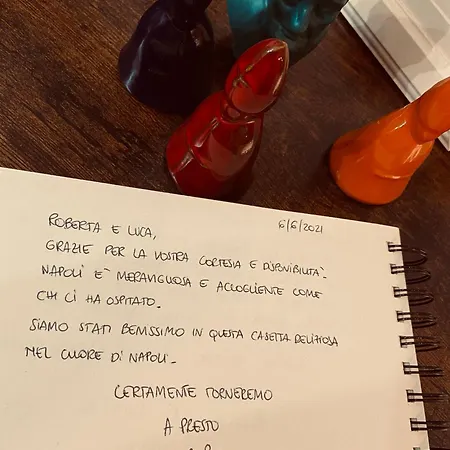 ROBERTA E LUCA,
6/6/2021
GRAZIE PER LA VOSTRA CORTESIA E DISPONIBILITÀ.
NAPOLI È MERAVIGLIOSA E ACCOGLIENTE COME
CHI CI HA OSPITATO.
SIAMO STATI BENISSIMO IN QUESTA CASETTA DELIZIOSA
NEL CUORE DI NAPOLI.
CERTAMENTE TORNEREMO
A PRESTO